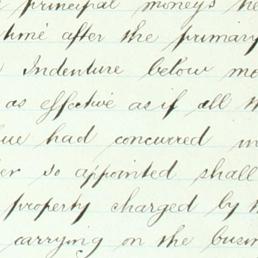 principal moneys he
time after the primary
Indenture below me
as effective as if all th
had concurred in
er so appointed shall
property charged by th
carrying on the busin